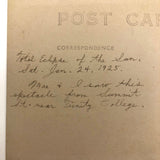 POST CA
CORRESPONDENCE
Total Eclipse of the Sun.
Sat. Jan. 24, 1925.
Mae & I saw this
spectacle from Summit
St. near Trinity College.